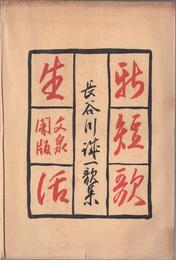 新短歌
長谷川誠一歌集
生活
文泉
閣版